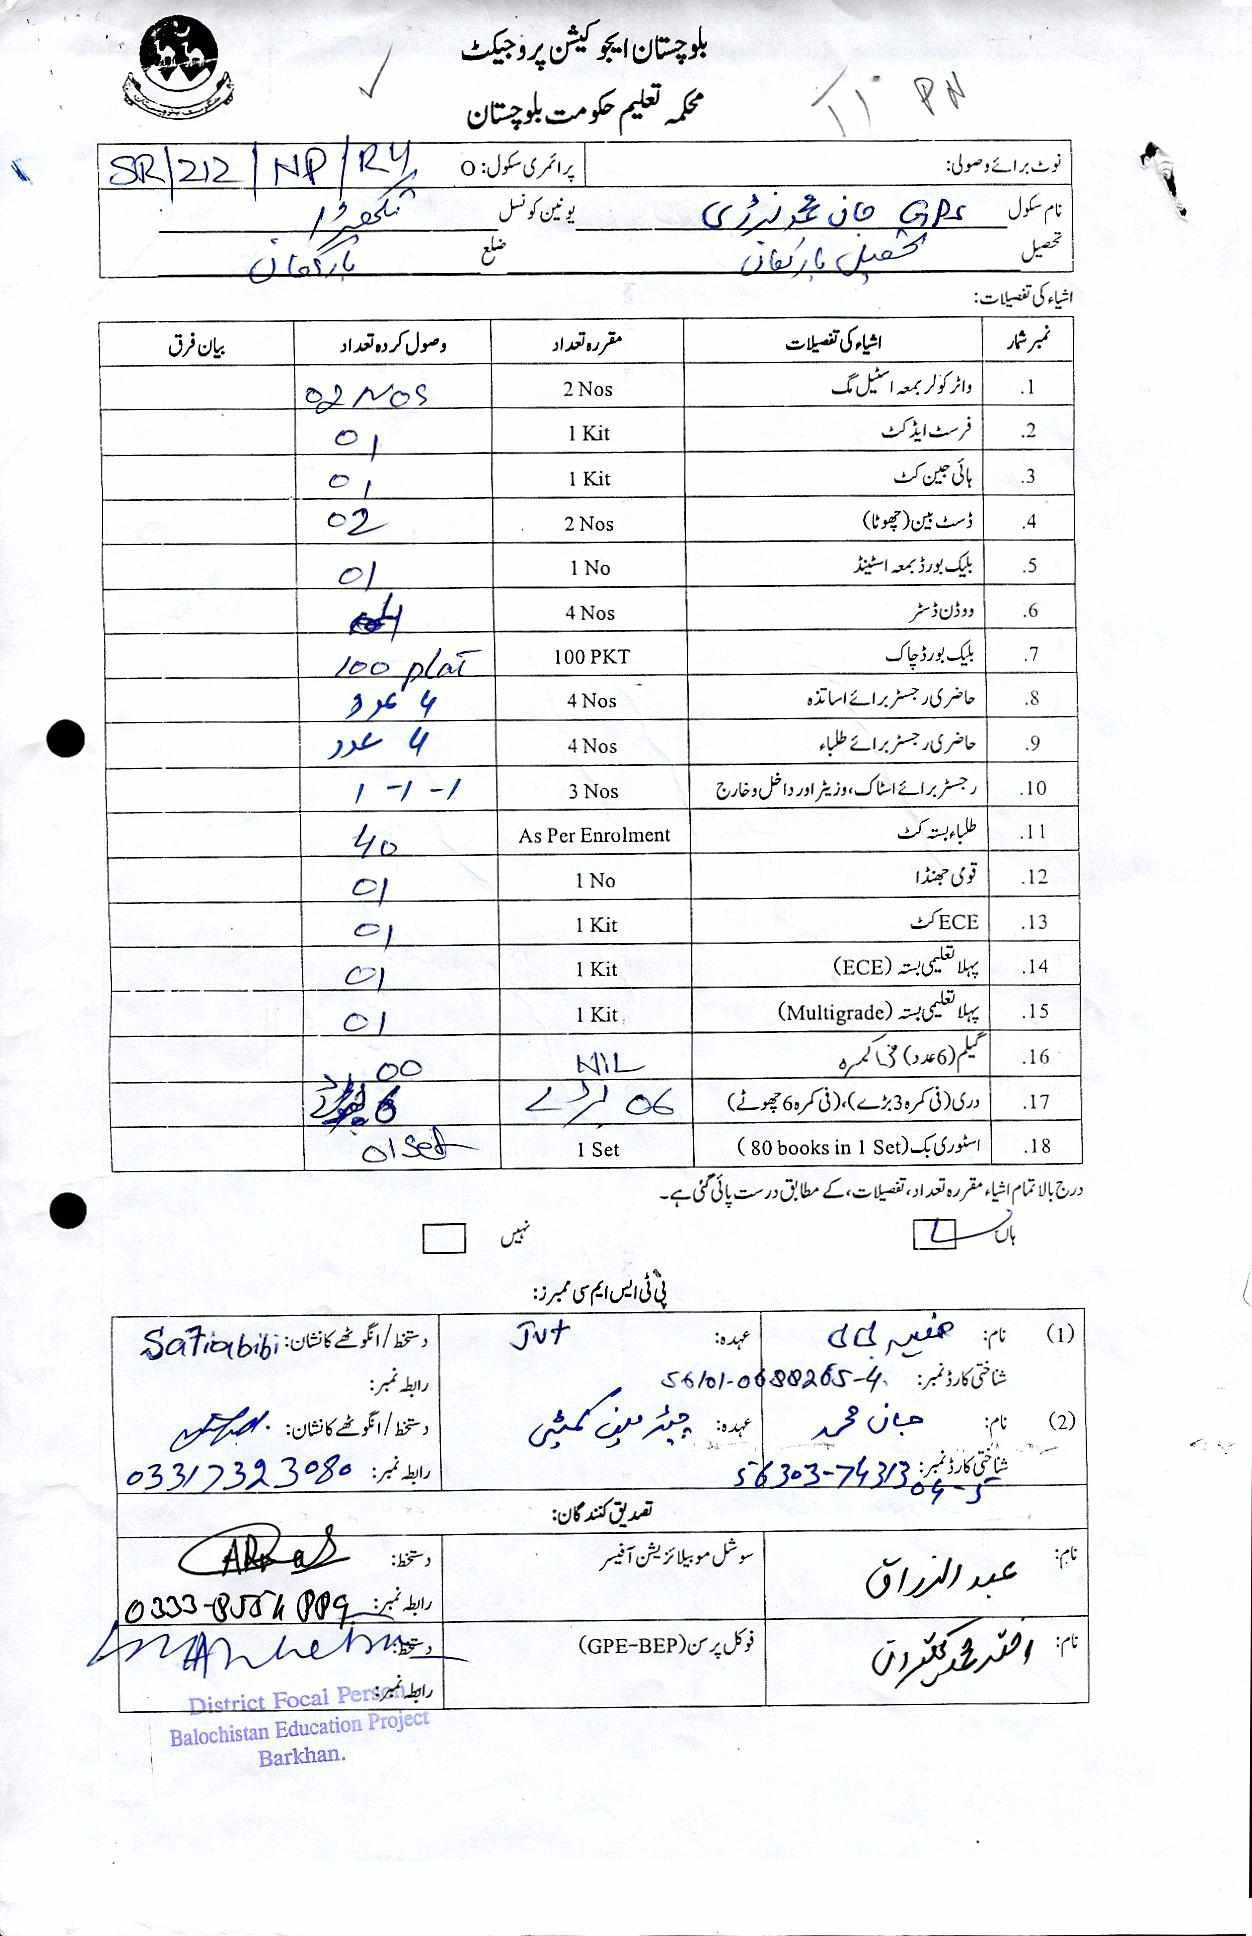 بلوچستان ایجوکیشن پروجیکٹ
محکمہ تعلیم حکومت بلوچستان
T1 PN
نوٹ برائے وصولی: پرائمری سکول: O SR/212/NP/R4
نام سکول GPS جان محمد یونین کونسل
تحصیل تحصیل بارکھان ضلع بارکھان
اشیاء کی تفصیلات:
نمبر شمار اشیاء کی تفصیلات مقررہ تعداد وصول کردہ تعداد بیان فرق
1. واٹر کولر بمعہ اسٹیل مگ 2 Nos 02 Nos
2. فرسٹ ایڈ کٹ 1 Kit 01
3. ہائی جین کٹ 1 Kit 01
4. ڈسٹ بین (چھوٹا) 2 Nos 02
5. بلیک بورڈ بمعہ اسٹینڈ 1 No 01
6. ووڈن ڈسٹر 4 Nos
7. بلیک بورڈ چاک 100 PKT 100
8. حاضری رجسٹر برائے اساتذہ 4 Nos 4 عدد
9. حاضری رجسٹر برائے طلباء 4 Nos 4 عدد
10. رجسٹر برائے اسٹاک، وزیٹر اور داخل و خارج 3 Nos 1-1-1
11. طلباء بستہ کٹ As Per Enrolment 40
12. قومی جھنڈا 1 No 01
13. ECE کٹ 1 Kit 01
14. پہلا تعلیمی بستہ (ECE) 1 Kit 01
15. پہلا تعلیمی بستہ (Multigrade) 1 Kit 01
16. گیلم (6 عدد) فی کمرہ NIL 00
17. دری (فی کمرہ 3 بڑے)، (فی کمرہ 6 چھوٹے) 06
18. اسٹوری بک (80 books in 1 Set) 1 Set 01 Set
درج بالا تمام اشیاء مقررہ تعداد، تفصیلات، کے مطابق درست پائی گئی ہے۔
ہاں نہیں
پی ٹی ایس ایم سی ممبرز:
(1) نام: صفیہ بی بی عہدہ: Jvt دستخط/انگوٹھے کا نشان: Safiabibi
شناختی کارڈ نمبر: 56101-0688265-4 رابطہ نمبر:
(2) نام: جان محمد عہدہ: چیئرمین کمیٹی دستخط/انگوٹھے کا نشان:
شناختی کارڈ نمبر: 56303-7431304-5 رابطہ نمبر: 03317323080
تصدیق کنندگان:
نام: عبدالرزاق سوشل موبیلائزیشن آفیسر دستخط:
رابطہ نمبر:
نام: اختر محمد کھیتران فوکل پرسن (GPE-BEP) دستخط:
رابطہ نمبر:
District Focal Person
Balochistan Education Project
Barkhan.